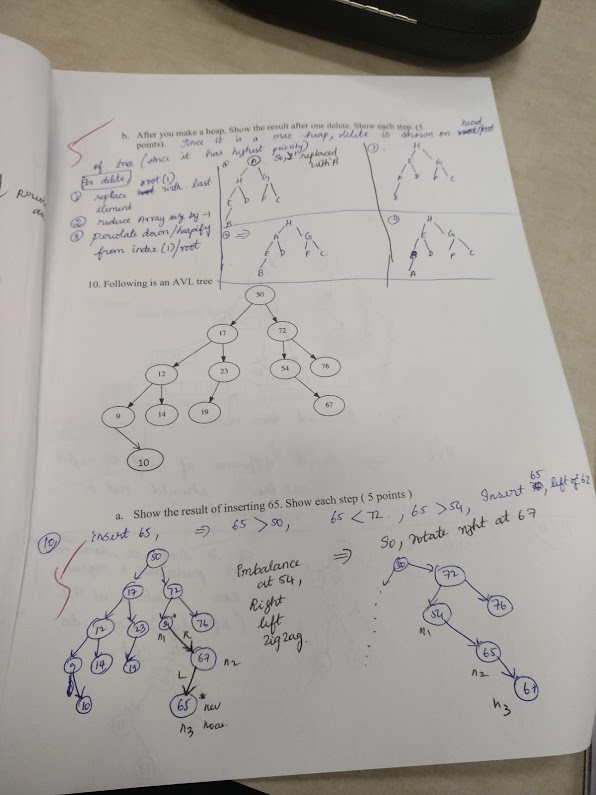 b. After you make a heap, Show the result after one delete. Show each step. (5
points). Since it is a max heap, delete is shown on head/root
of tree (since it has highest priority)
In delete,
① replace root(1) with last
element
② reduce Array size by -1
③ percolate down/heapify
from index (1)/root
So, replaced
with A
H
E G
D F C
B
③
H
A G
E D F C
B
H
E G
A D F C
B
H
E G
B D F C
A
10. Following is an AVL tree
50
17 72
12 23 54 76
9 14 19 67
10
a. Show the result of inserting 65. Show each step ( 5 points )
⑩ insert 65, ⇒ 65 > 50, 65 < 72, 65 > 54, Insert 65, left of 67
So, rotate right at 67
50
17 72
12 23 54 76
9 14 19 67
10 65
n1 R n2
L
* new
node.
n3
Imbalance
at 54,
Right
left
zigzag.
⇒
50 72
54 76
n1 65
n2 67
n3